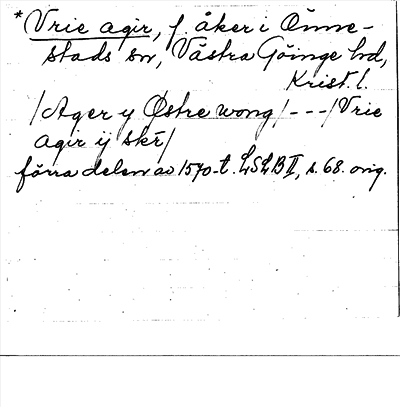 * Vrie agir, f. åker i Önne-
stads sn, Västra Göinge hd,
Krist. l.
/Ager y Østre wong/ - - - /Vrie
agir ij skr̄/
förra delen av 1570-t. LSLB II, s. 68. orig.